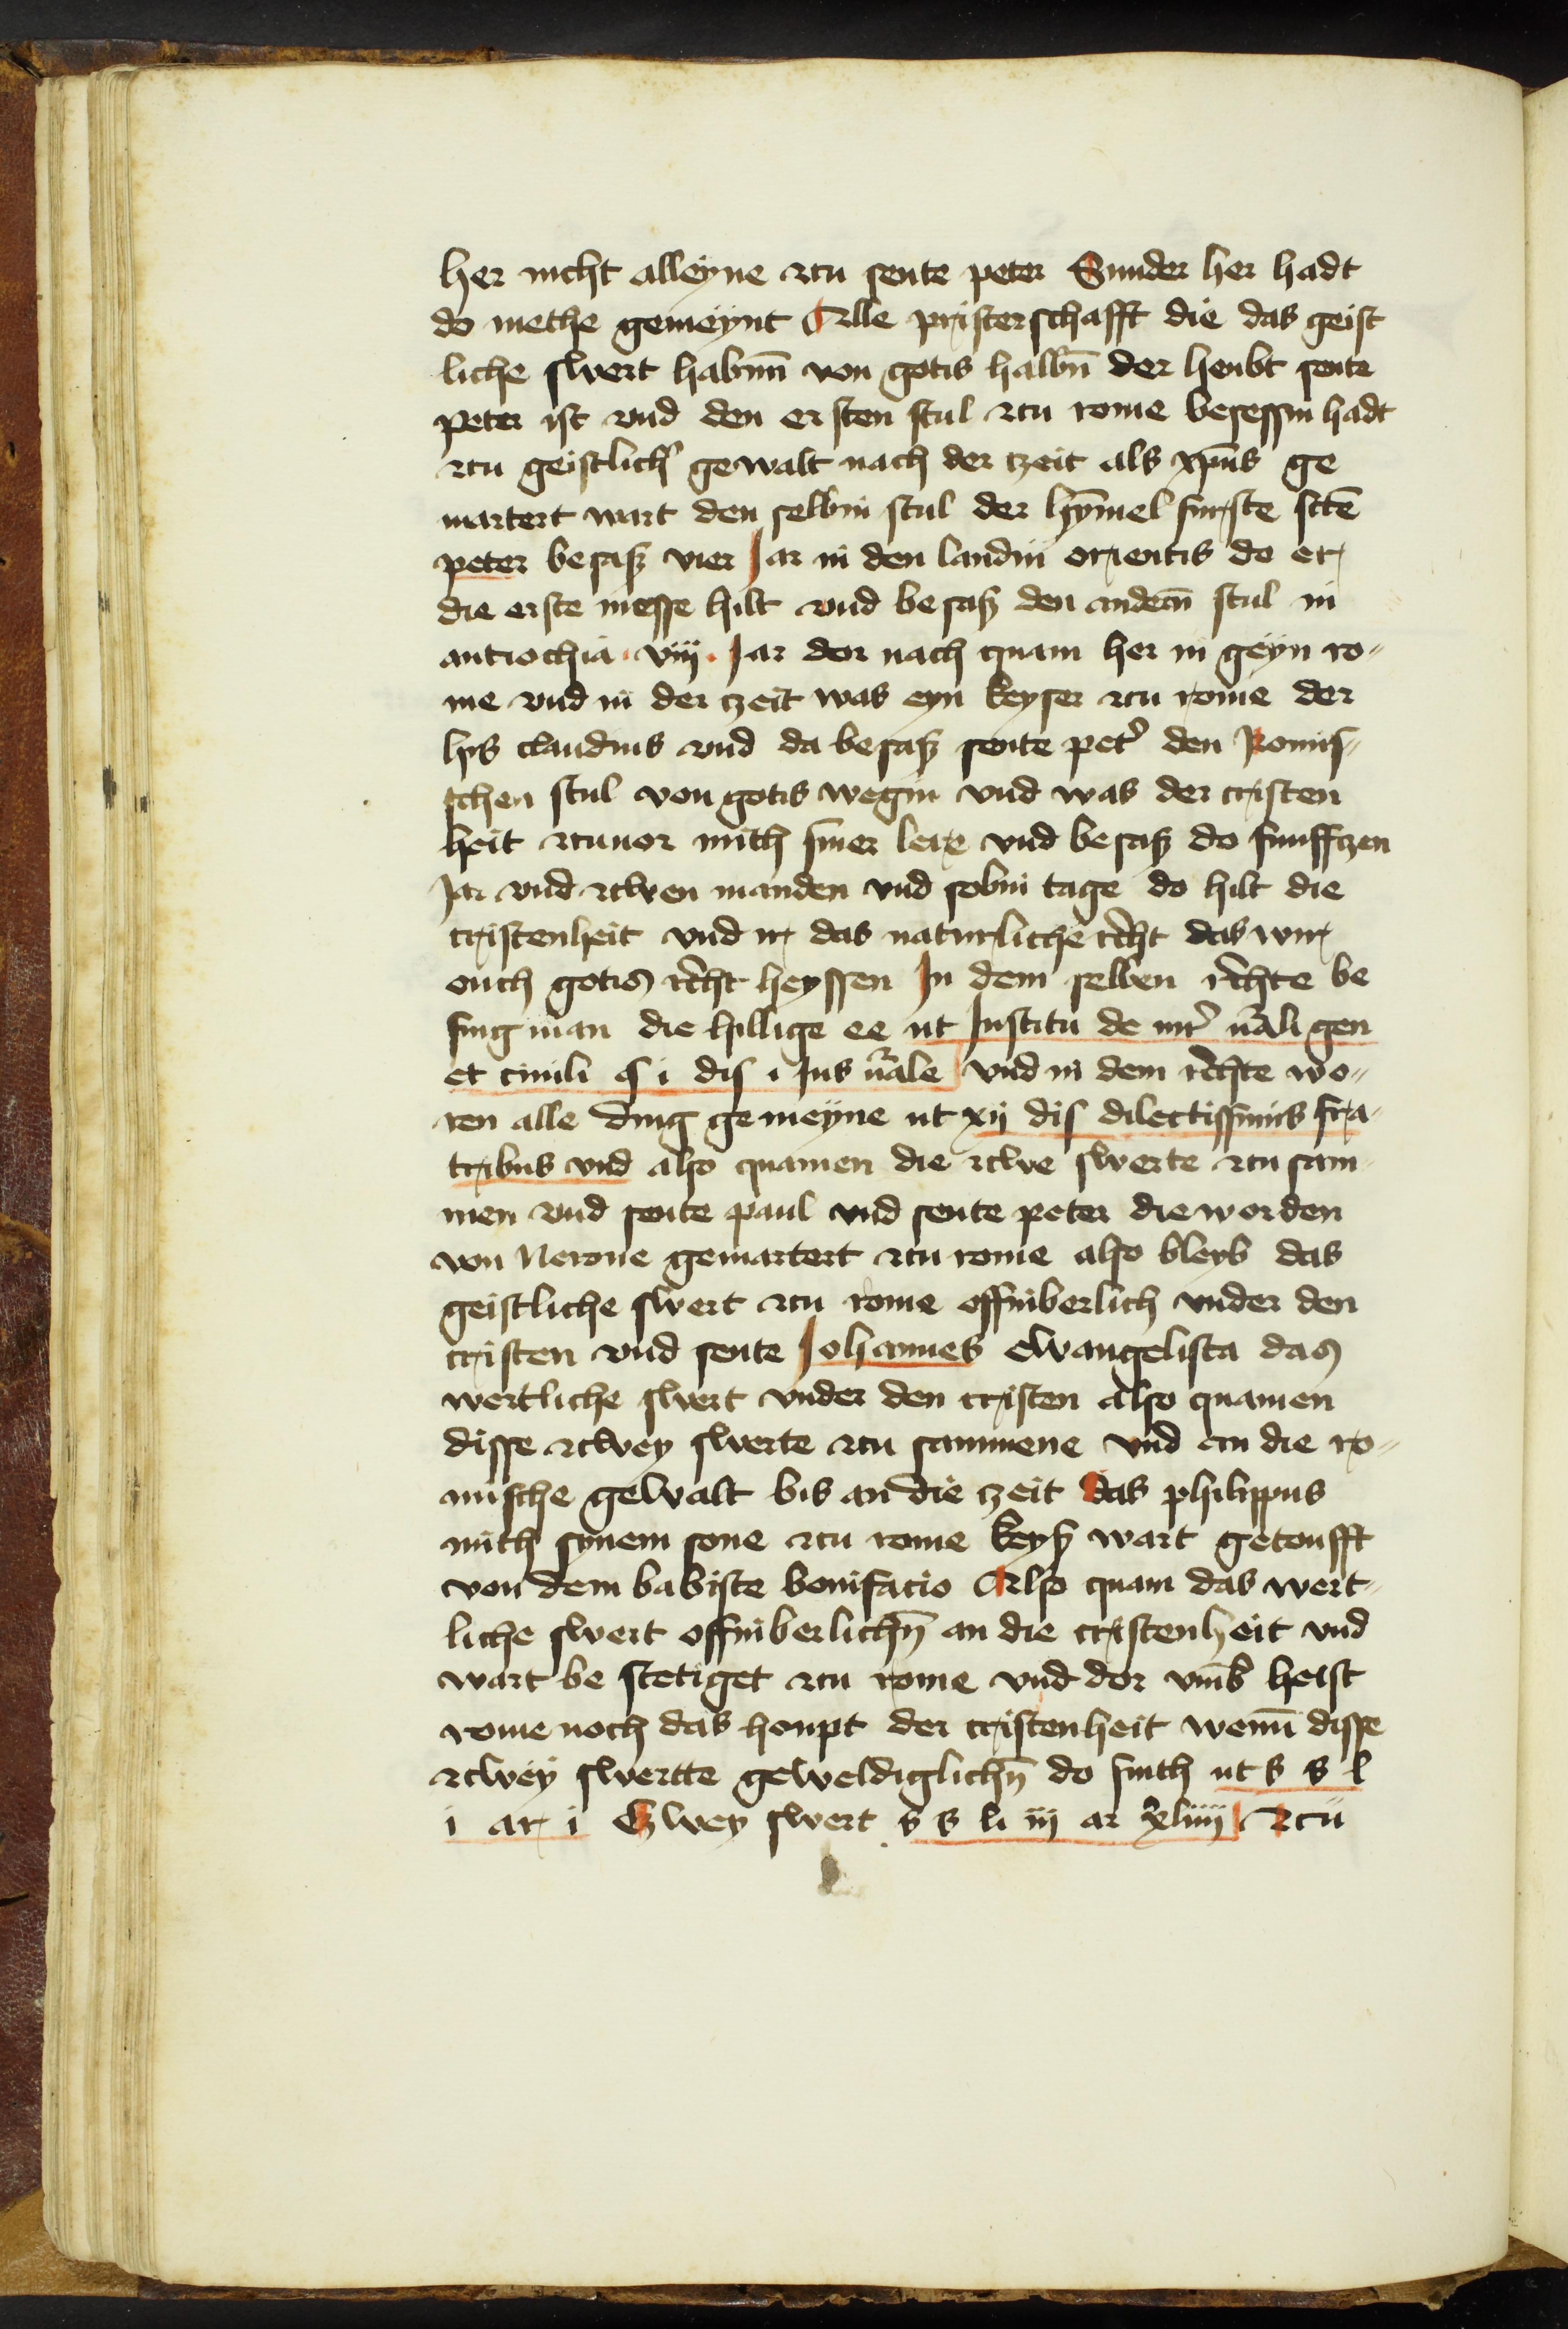 her nicht alleyne zcu sente peter Sunder her hadt
do methe gemeynt Alle pristerschafft die das geist
liche swert habinn̄ von gotis halbn̄ der heubt sente
peter ist vnd den ersten stul zcu rome besessin hadt
zcu geistlich' gewalt nach der tzeit als xpūs ge
martert wart den selbin stul der hȳmel furste sctē
peter besasz vier Jar in den landin orientis do er
die erste messe hilt vnd besasz den andern̄ stul in
antiochia · viij · Jar dor nach quam her in geyn ro-
me vnd in der tzeit was eyn keyser zcu rome der
his claudius vnd da besasz sente pet' den Romis-
schen stul von gotis wegin vnd was der cristen
heit zcuuor mith siner lere vnd besasz do funfftzen
Jar vnd zcwen manden vnd sobin tage do hilt die
cristenheit vnd ir das naturliche recht das wir
ouch gotis recht heyssen In dem selben rechte be
fing man die hillige ee ut Institu de iur' n̄ali gen
et ciuili q i dis i Jus n̄ale vnd in dem rechte wo-
ren alle ding gemeyne ut xij dis dilectissimis fra-
tribus vnd also quamen die zcwe swerte zcu sam-
men vnd sente paul vnd sente peter die worden
von Nerone gemartert zcu rome also bleyb das
geistliche swert zcu rome offinberlich vnder den
cristen vnd sente Johannes ewangelista das
wertliche swert vnder den cristen also quamen
disse zcwey swerte zcu sammene vnd an die ro-
mische gewalt bis an die tzeit das philippus
mith synem sone zcu rome keys' wart getoufft
von dem babiste bonifacio Also quam das wert-
liche swert offinberlichn̄ an die cristenheit vnd
wart be stetiget zcu rome vnd dor vmb heist
rome noch das houpt der cristenheit wenn̄ disse
zcwey swertte geweldiglichn̄ do sinth ut s s l
i ar i Czwey swert s s li iij ar xliiij Zcu